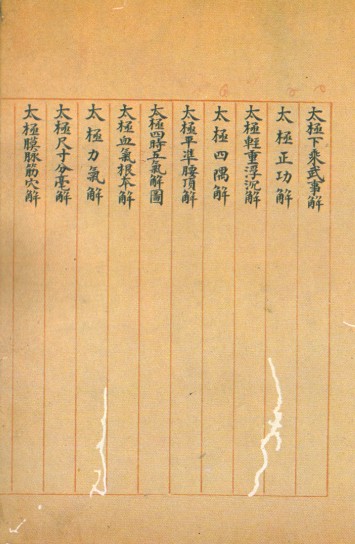 太極下乘武事解
太極正功解
太極輕重浮沉解
太極四隅解
太極平準腰頂解
太極四時五氣解圖
太極血氣根本解
太極力氣解
太極尺寸分毫解
太極膜脉筋穴解